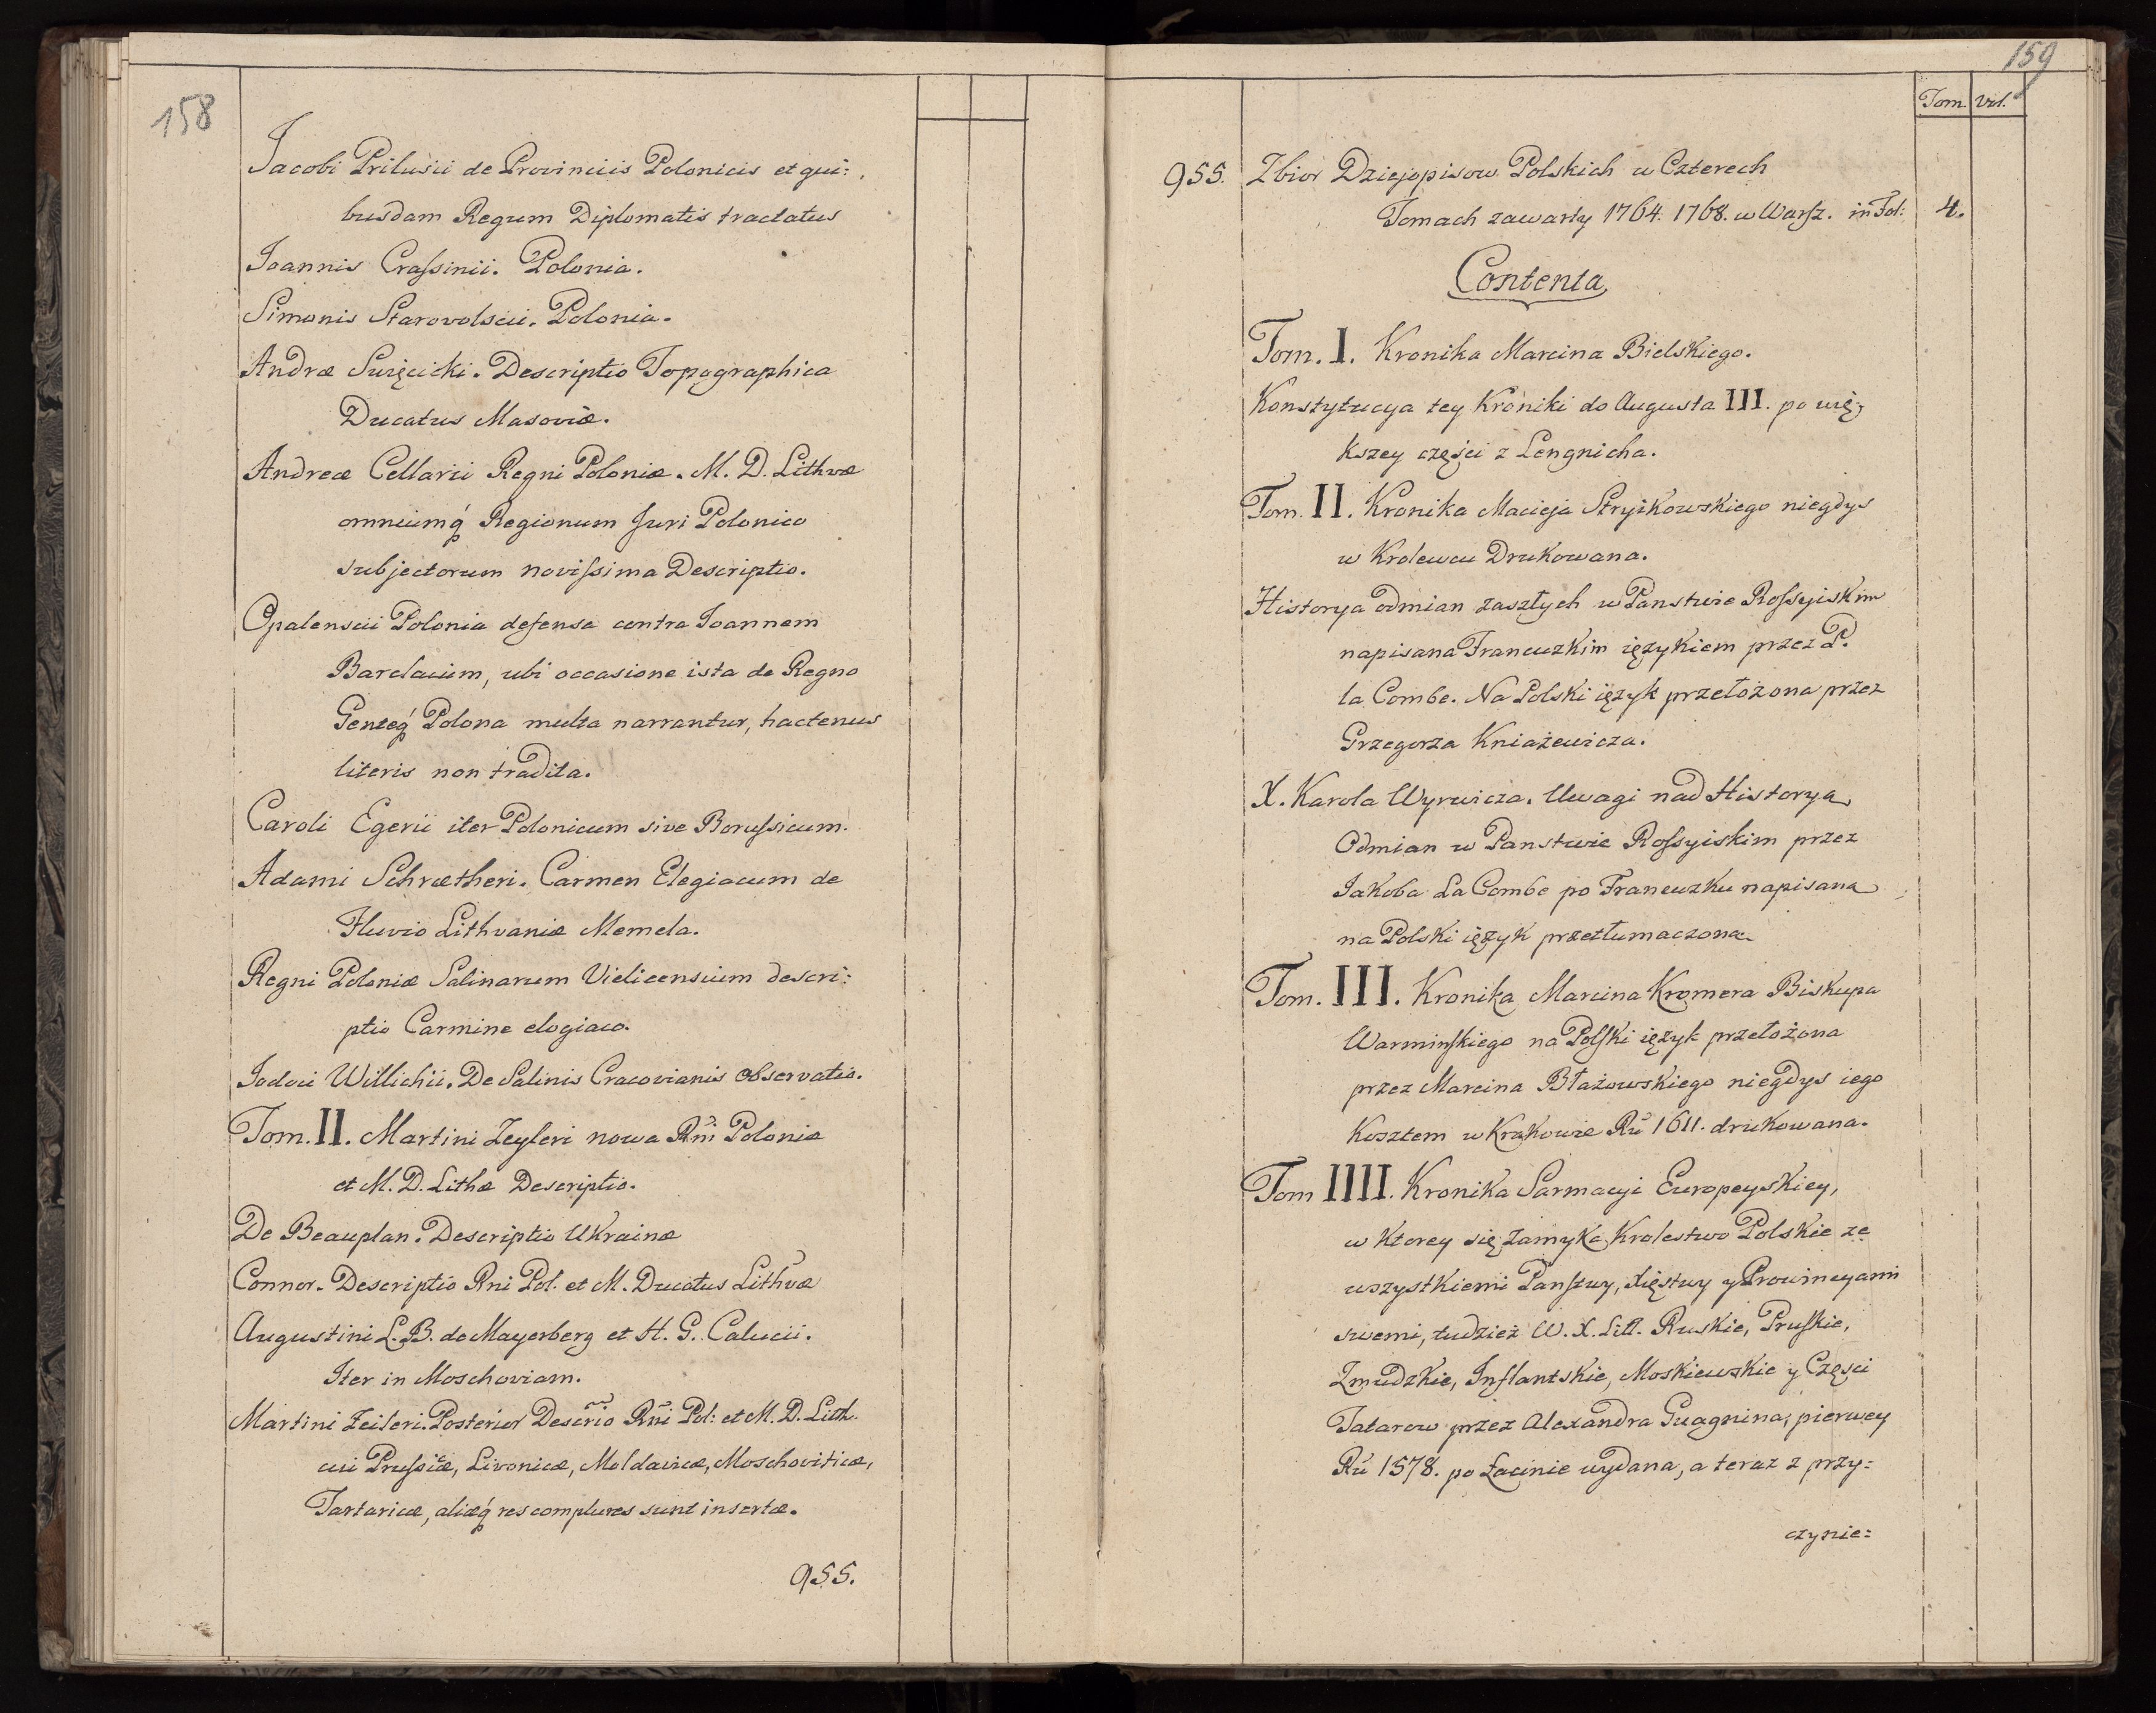 158
Jacobi Prilusii de Provinciis Polonicis et qui:
busdam Regum Diplomatis tractatus
Joannis Craſsinii. Polonia.
Simonis Starovolscii. Polonia.
Andræ Swięcicki. Descriptio Topographica
Ducatus Masoviæ.
Andreæ Cellarii Regni Poloniæ. M. D. Lithvæ
omniumq́ Regionum Juri Polonico
subjectorum noviſsima Descriptio.
Opalenscii Polonia defensa contra Joannem
Barclaium, ubi occasione ista de Regno
Genteq́ Polona multa narrantur, hactenus
literis non tradita.
Caroli Egerii iter Polonicum sive Boruſsicum.
Adami Schrœtheri. Carmen Elegiacum de
Fluvio Lithvaniæ Memela.
Regni Poloniæ Salinarum Vielicensium descri:
ptio Carmine elogiaco.
Jodoci Willichii. De Salinis Cracovianis observatio.
Tom. II. Martini Zeyleri nowa Rn̄i Poloniæ
et M. D. Lithæ Descriptio.
De Beauplan. Descriptio Ukrainæ
Connor. Descriptio Rni Pol. et M. Ducatus Lithvæ
Augustini L. B. de Mayerberg et H. G. Calucii.
Iter in Moschoviam.
Martini Zeileri. Posterior Descrio Rn̄i Pol: et M. D. Lith.
cui Pruſsicæ, Livonicæ, Moldavicæ, Moschoviticæ,
Tartaricæ, aliæq́ res complures sunt insertæ.
955.
159
Tom. Vol.
955. Zbior Dziejopisow Polskich w Czterech
Tomach zawarty 1764. 1768. w Warſz. in Fol: 4.
Contenta
Tom. I. Kronika Marcina Bielskiego.
Konstytucya tey Kroniki do Augusta III. po wię:
kszey częſci z Lengnicha.
Tom. II. Kronika Macieja Stryikowskiego niegdys
w Krolewcu Drukowana.
Historya odmian zaszłych w Panstwie Roſsyiskim
napisana Francuzkim ięzykiem przez P.
la Combe. Na Polski ięzyk przełożona przez
Grzegorza Kniażewicza.
X. Karola Wyrwicza. Uwagi nad Historyą
Odmian w Panstwie Roſsyiskim przez
Jakoba La Combe po Francuzku napisaną
na Polski ięzyk przetłumaczoną
Tom. III. Kronika Marcina Kromera Biskupa
Warminſkiego na Polſki ięzyk przełożona
przez Marcina Błażowskiego niegdys iego
Kosztem w Krakowie Ru 1611. drukowana.
Tom IIII. Kronika Sarmacyi Europeyskiey,
w Ktorey się zamyka Krolestwo Polskie ze
wszystkiemi Panſtwy, Xięstwy y Prowincyami
swemi, tudzież W. X. Litt. Ruskie, Pruſkie,
Zmudzkie, Inflantskie, Moskiewskie y Częſci
Tatarow przez Alexandra Guagnina, pierwey
Ru 1578. po Łacinie wydana, a teraz z przy=
czynie=